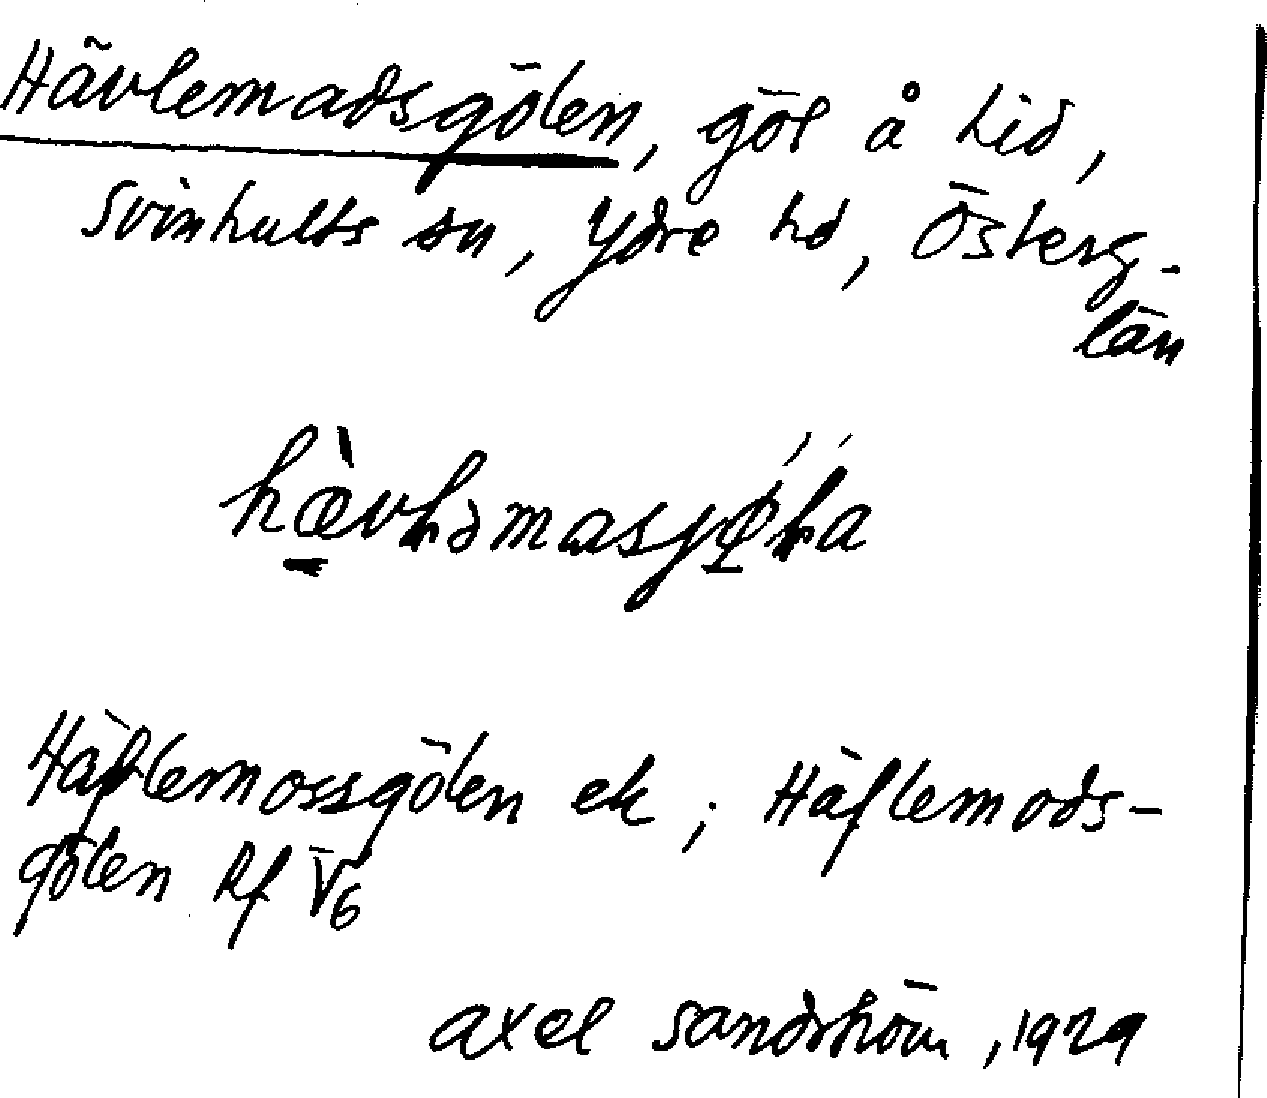 Hävlemadsgölen, göl å Lid,
Svinhults sn, Ydre hd, Österg.
län
Häflemossgölen ek ; Häflemods-
gölen Rf V6
Axel Sandström, 1929